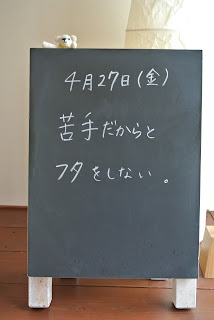 4月27日(金)
苦手だからと
フタをしない。